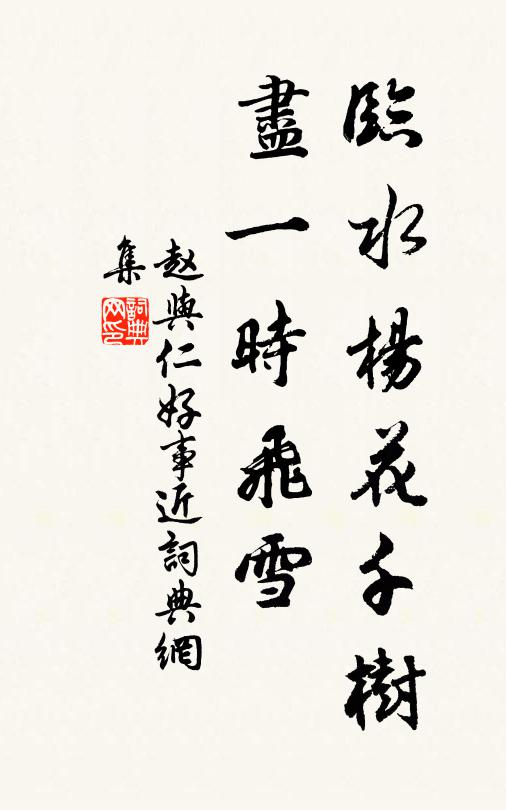 臨水楊花千樹
盡一時飛雪
赵與仁好事近詞典網
集
詞典
网印